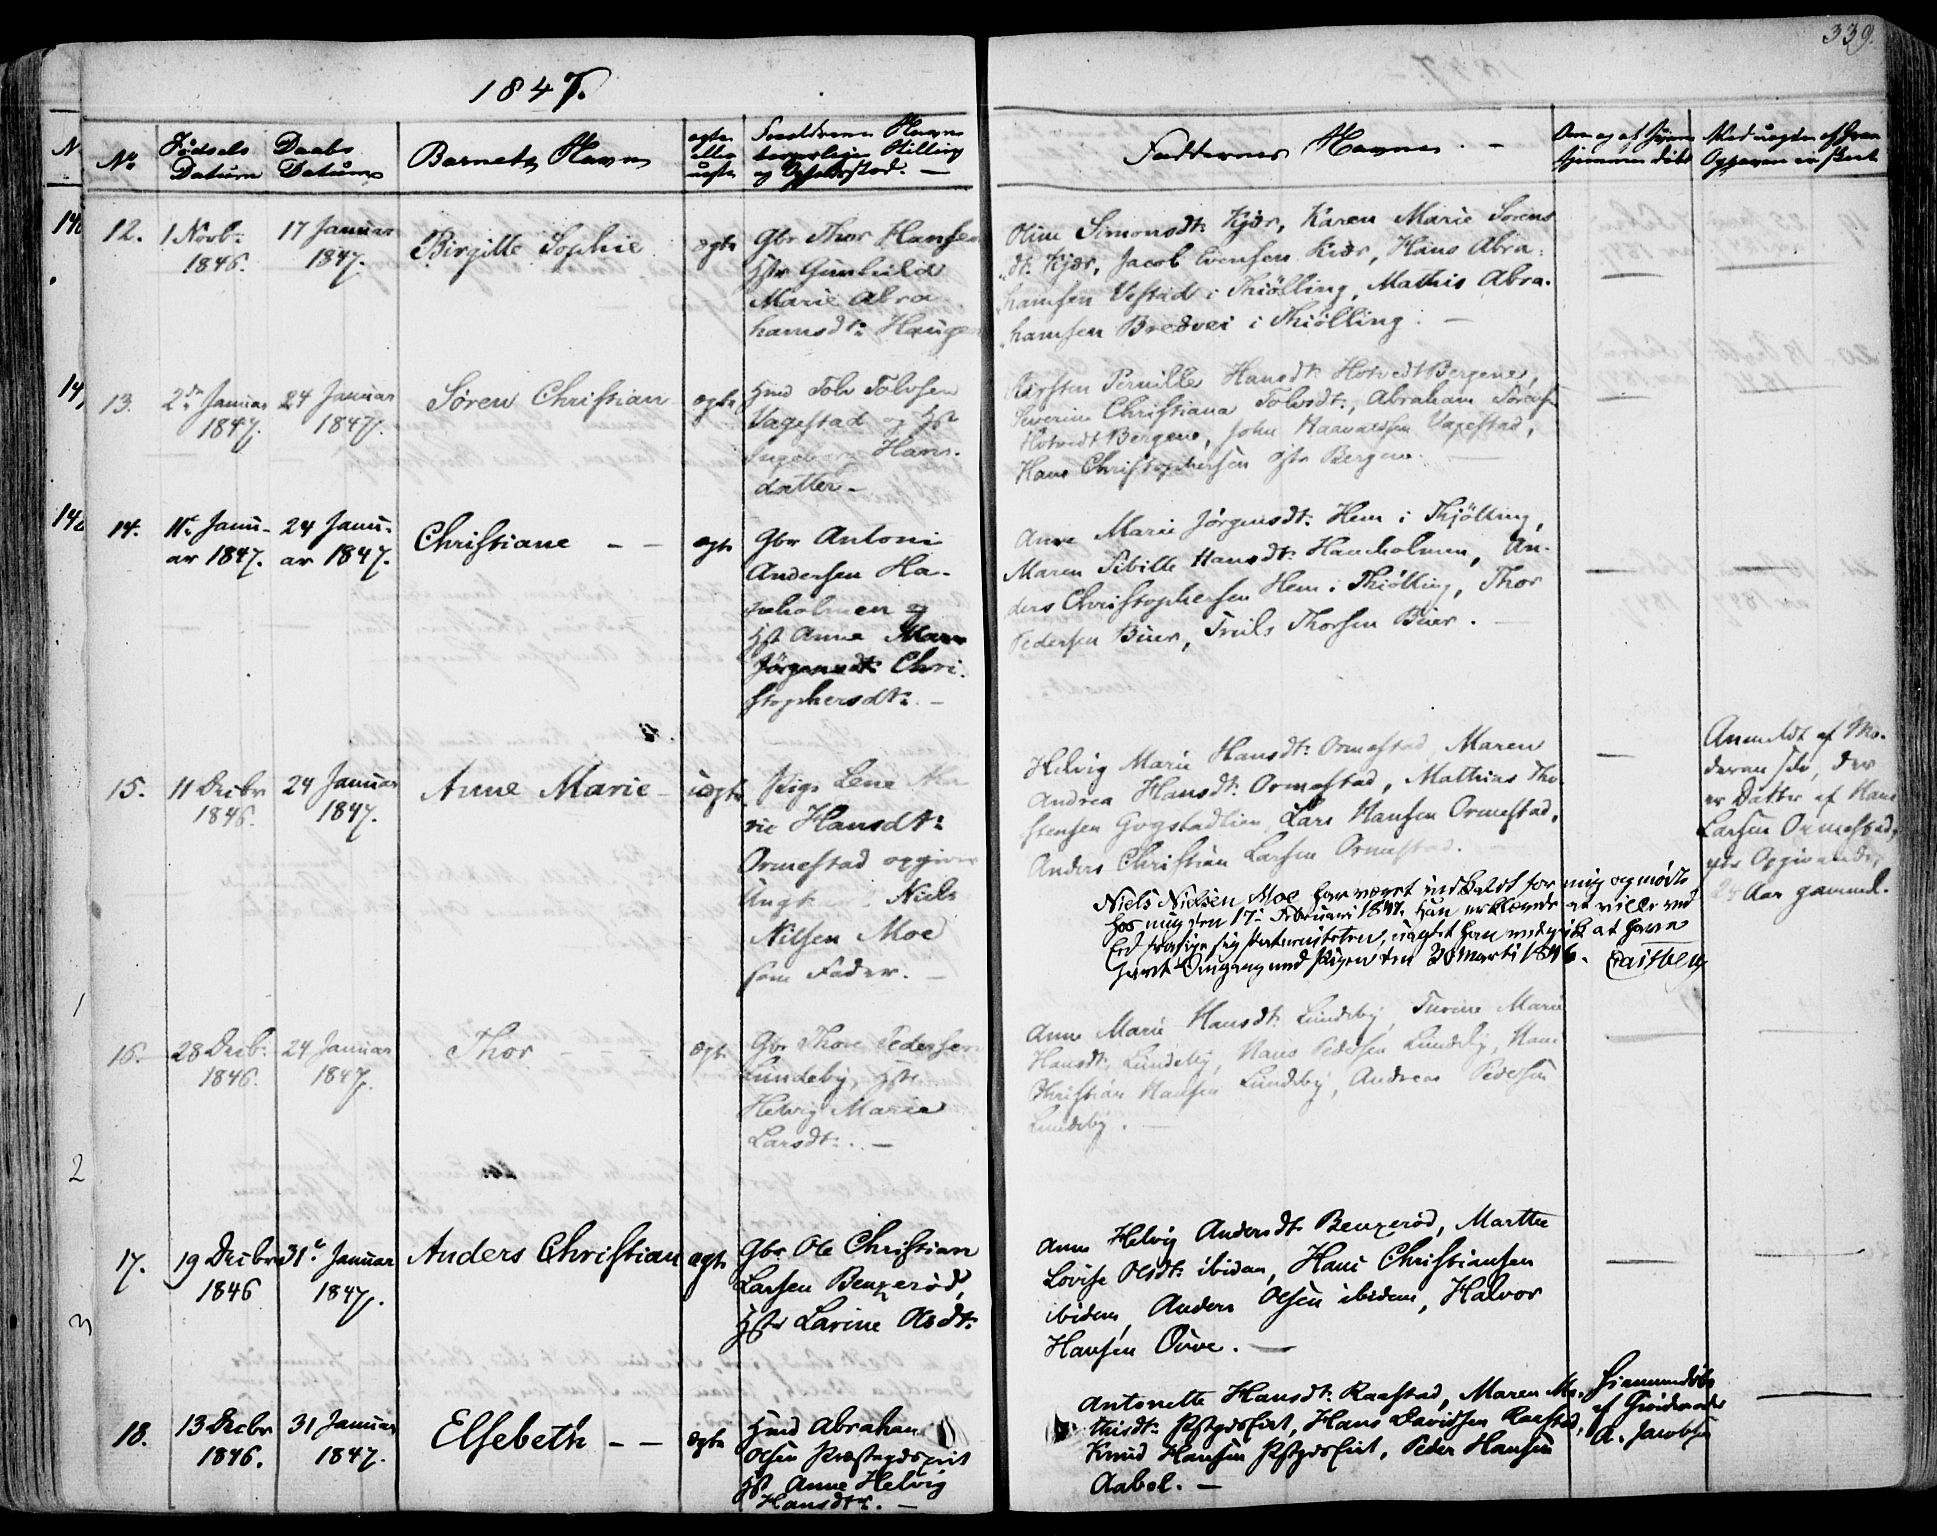 339.
1847.
No
Fødsels Datum
Daabs Datum
Barnets Navn
ægte eller uægte
Forældrenes Navn
borgerlige Stilling
og Opholdssted. —
Faddernes Navne. —
12.
1 Novb:
1846.
17 Januar
1847.
Birgitte Sophie
ægte
Gbr Thor Hansen
Hstr Gunhild
Marie Abra
hamsdt: Haugen
Oline Simonsdt: Kjær, Karen Marie Sørens
dt: Kjær, Jacob Evensen Kiær, Hans Abra:
hamsen Vestad i Thiølling, Mathis Abra-
hamsen Bredvei i Thiølling. —
—
13.
2den Januar
1847.
24 Januar
1847.
Søren Christian
ægte
Hmd Tolv Tolvsen
Vagestad og Hst
Ingeborg Hans-
datter —
Kirsten Pernille Hansdt: Hotvedt Bergene,
Severine Christiana Tolvsdt:, Abraham Sørensen
Hotvedt Bergene, John Haavaldsen Vagestad,
Hans Christophersen Bergene. —
—
14.
11te Janu-
ar 1847.
24 Janu-
ar 1847.
Christiane — —
ægte
Gbr Antoni
Andersen Ha-
neholmen og
Hst Anne Marie
Jørgensdt: Chri-
stophersdt: —
Anne Marie Jørgensdt: Hem i Thjølling,
Maren Sibille Hansdt: Haneholmen, An-
ders Christophersen Hem i Thiølling, Thor
Pedersen Buer, Truls Thorsen Buer. —
—
15.
11 Decbr
1846.
24 Januar
1847.
Anne Marie —
uægte
Pige Lene Ma
rie Hansdt:
Ormestad opgiver
Ungk: Niels
Nilsen Moe
som Fader. —
Helvig Marie Hansdt: Ormestad, Maren
Andrea Hansdt: Ormestad, Mathias Tho-
stensen Gogstadlien, Lars Hansen Ormestad,
Anders Christian Larsen Ormestad. —
Niels Nielsen Moe har været indkaldt for mig og mødte
hos mig den 17: Februari 1847. Han erklærede at ville med
Ed fralægge sig Paterniteten, uagtet han vedgik at have
havt Omgang med Pigen den 20 Marti 1846.
—
Anmeldt af Mo-
deren selv, der
er Datter af Hans
Larsen Ormestad,
efter Opgivende
24 Aar gammel.
16.
28 Decb:
1846.
24 Januar
1847.
Thor —
ægte
Gbr Thore Pedersen
Lundeby, Hstr
Helvig Marie
Larsdt: —
Anne Marie Hansdt: Lundeby, Turine Marie
Hansdt: Lundeby, Hans Pedersen Lundeby, Hans
Christian Hansen Lundeby, Andreas Pedersen
Lundeby. —
—
17.
19 Decbr
1846
31te Januar
1847.
Anders Christian
ægte
Gbr Ole Christian
Larsen Benzerød,
Hstr Larine Olsdt:
Anne Helvig Andersdt: Benzerød, Marthe
Lovise Olsdt: ibidem, Hans Christiansen
ibidem, Anders Olsen ibidem, Halvor
Hansen Ouve. —
—
18.
13 Decbr
1846.
31 Januar
1847.
Elsebeth — —
ægte
Hmd Abraham
Olsen Præstegdseiet
Hst Anne Helvig
Hansdtr. —
Antonette Hansdt: Raastad, Maren Ma-
thisdt: Pstgdseiet, Hans Davidsen Raastad,
Knud Hansen Pstgdseiet, Peder Hansen
Aabol. —
Hjemmedøbt
af Gjordemoder
A. Jacobsen
—